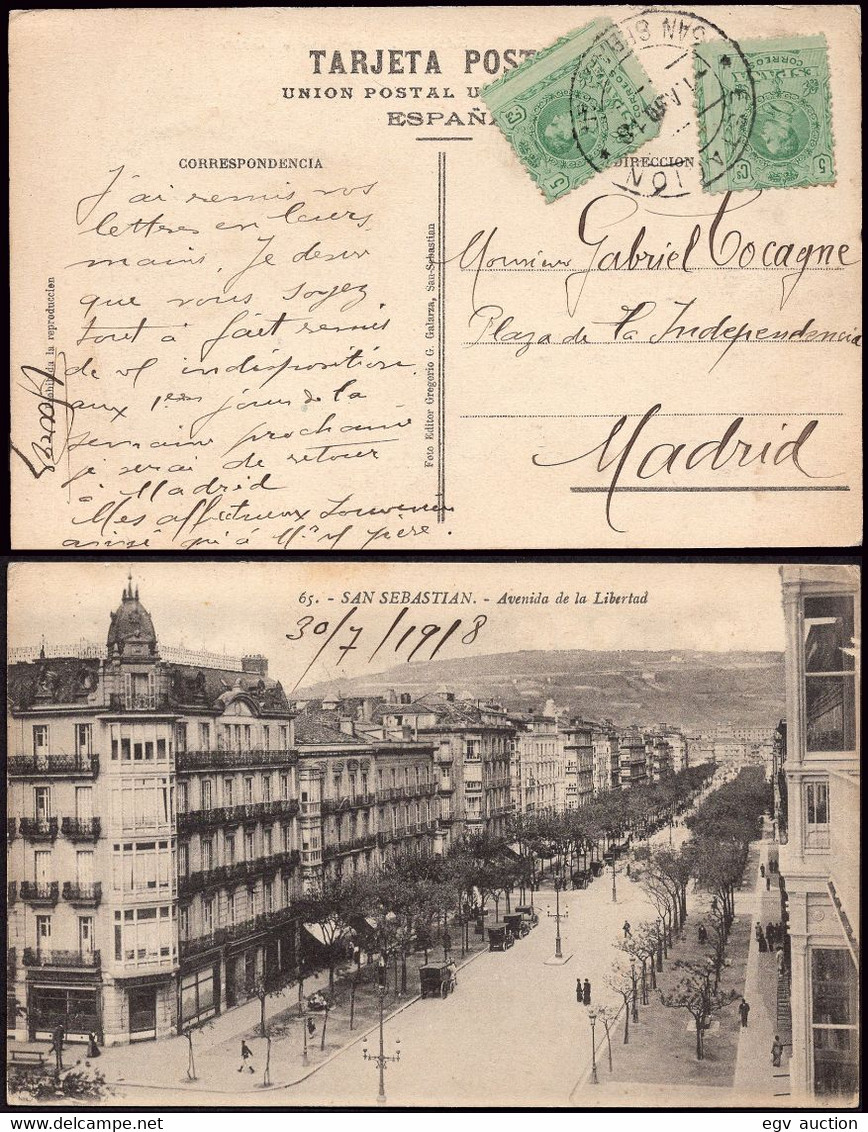 TARJETA POST
UNION POSTAL U
ESPAÑA
CORRESPONDENCIA
DIRECCION
CORREOS
5 Cs
CORREOS
5 Cs
SAN SEB
ESTACION
18
J'ai remis vos
lettres en leurs
mains. Je desire
que vous soyez
tout à fait remis
de vl indisposition.
aux 1ers jours de la
semaine prochaine
je serai de retour
à Madrid
Mes affectueux souvenirs
ainsi qu'à Mr vl père.
la reproduccion
Foto Editor Gregorio G. Galarza, San-Sebastian
Monsieur Gabriel Cocagne
Plaza de la Independencia
Madrid
65. - SAN SEBASTIAN. - Avenida de la Libertad
30/7/1918
egv auction